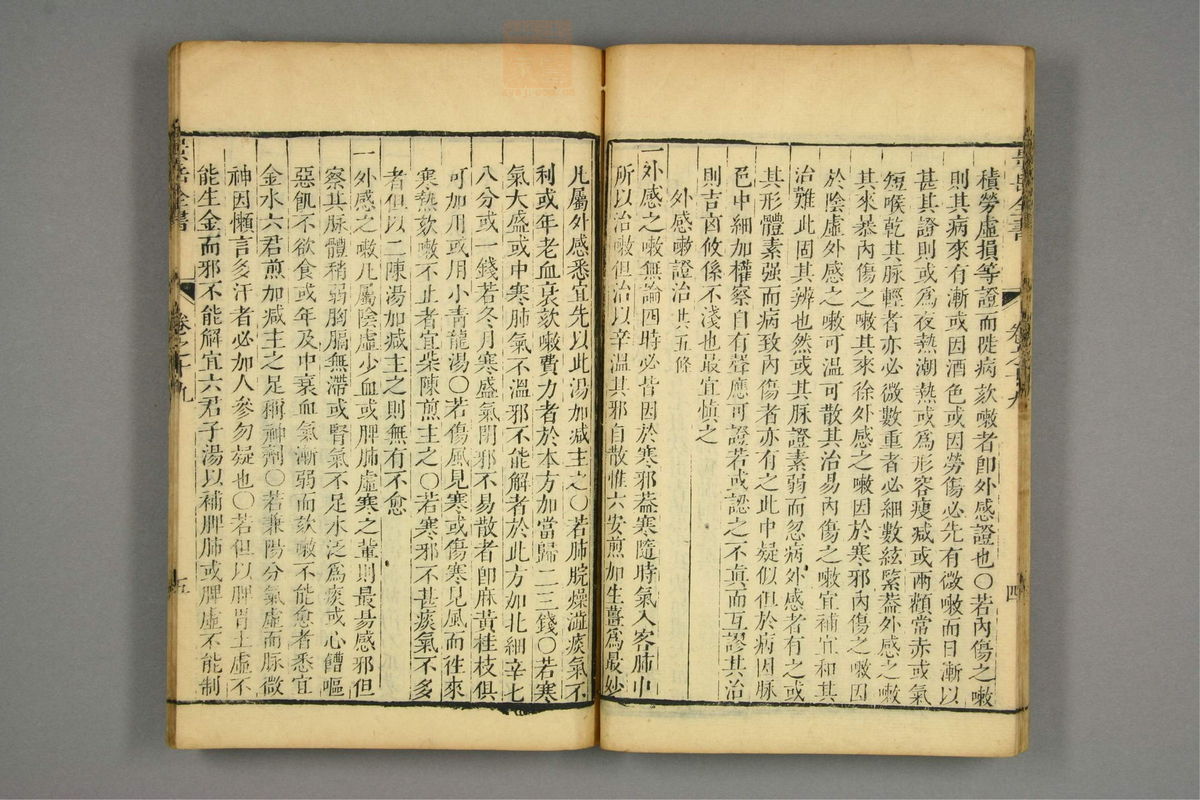 積勞虛損等證而陡病欬嗽者卽外感證也〇若內傷之嗽
則其病來有漸或因酒色或因勞傷必先有微嗽而日漸以
甚其證則或爲夜熱潮熱或爲形容瘦減或兩顴常赤或氣
短喉乾其脉輕者亦必微數重者必細數絃緊葢外感之嗽
其來暴內傷之嗽其來徐外感之嗽因於寒邪內傷之嗽因
於陰虛外感之嗽可溫可散其治易內傷之嗽宜補宜和其
治難此固其辨也然或其脉證素弱而忽病外感者有之或
其形體素强而病致內傷者亦有之此中疑似但於病因脉
色中細加權察自有聲應可證若或認之不眞而互謬其治
則吉凶攸係不淺也最宜愼之
外感嗽證治 共五條
一外感之嗽無論四時必皆因於寒邪葢寒隨時氣入客肺中
所以治嗽但治以辛溫其邪自散惟六安煎加生薑爲最妙
凡屬外感悉宜先以此湯加減主之〇若肺脘燥澁痰氣不
利或年老血衰欬嗽費力者於本方加當歸二三錢〇若寒
氣大盛或中寒肺氣不溫邪不能解者於此方加北細辛七
八分或一錢若冬月寒盛氣閉邪不易散者卽麻黃桂枝俱
可加用或用小靑龍湯〇若傷風見寒或傷寒見風而徃來
寒熱欬嗽不止者宜柴陳煎主之〇若寒邪不甚痰氣不多
者但以二陳湯加減主之則無有不愈
一外感之嗽凡屬陰虛少血或脾肺虛寒之輩則最昜感邪但
察其脉體稍弱胸膈無滯或腎氣不足水泛爲痰或心饂嘔
惡飢不欲食或年及中衰血氣漸弱而欬嗽不能愈者悉宜
金水六君煎加減主之足稱神劑〇若兼陽分氣虛而脉微
神困懶言多汗者必加人參勿疑也〇若但以脾胃土虛不
能生金而邪不能解宜六君子湯以補脾肺或脾虛不能制
景岳全書
卷之十九
四
景岳全書
卷之十九
五